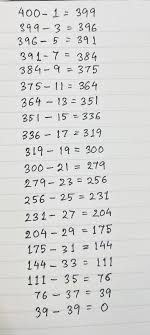 400 - 1 = 399
399 - 3 = 396
396 - 5 = 391
391 - 7 = 384
384 - 9 = 375
375 - 11 = 364
364 - 13 = 351
351 - 15 = 336
336 - 17 = 319
319 - 19 = 300
300 - 21 = 279
279 - 23 = 256
256 - 25 = 231
231 - 27 = 204
204 - 29 = 175
175 - 31 = 144
144 - 33 = 111
111 - 35 = 76
76 - 37 = 39
39 - 39 = 0